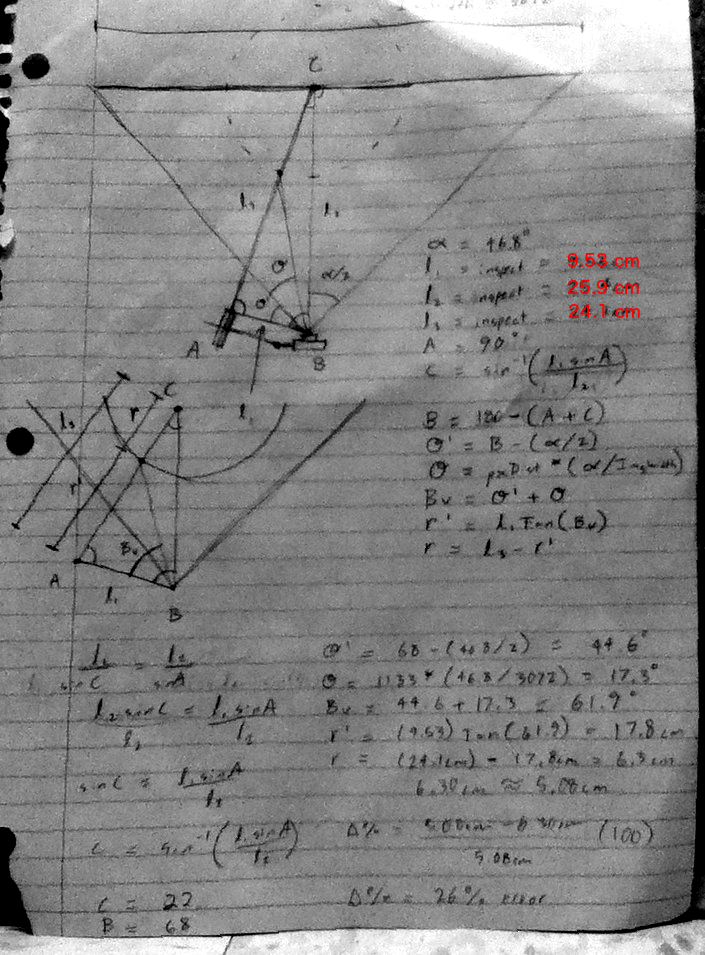 C
l₃
l₂
θ
α/2
θ'
A
B
l₁
α = 46.8°
l₁ = inspect = 9.53 cm
l₂ = inspect = 25.9 cm
l₃ = inspect = 24.1 cm
A = 90°
C = sin⁻¹(l₁ sin A / l₂)
B = 180 - (A + C)
θ' = B - (α/2)
θ = pxDist * (α/Imgwidth)
Bᵥ = θ' + θ
r' = l₁ Tan(Bᵥ)
r = l₃ - r'
l₃
r
C
r'
Bᵥ
A
l₁
B
l₁ / sin C = l₂ / sin A
l₂ sin C / l₂ = l₁ sin A / l₂
sin C = l₁ sin A / l₂
C = sin⁻¹(l₁ sin A / l₂)
C = 22
B = 68
θ' = 68 - (46.8/2) = 44.6°
θ = 1133 * (46.8/3072) = 17.3°
Bᵥ = 44.6 + 17.3 = 61.9°
r' = (9.53) Tan(61.9) = 17.8cm
r = (24.1cm) - 17.8cm = 6.3cm
6.30cm ≈ 5.08cm
Δ% = 5.08cm - 6.30cm / 5.08cm (100)
Δ% = 26% error